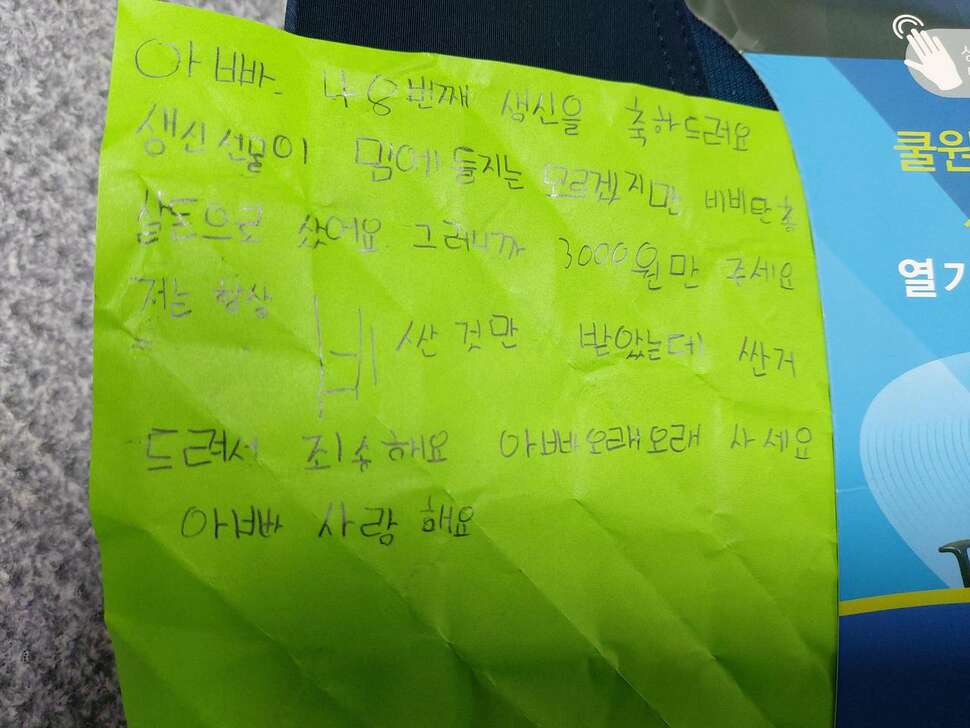 아빠. 나 8번째 생신을 축하드려요
생신선물이 맘에들지는 모르겠지만 비비탄총
살돈으로 샀어요 그러니까 3000원만 주세요
저는 항상 비싼것만 받았는데 싼거
드려서 죄송해요 아빠오래오래 사세요
아빠 사랑해요
쿨원
열기